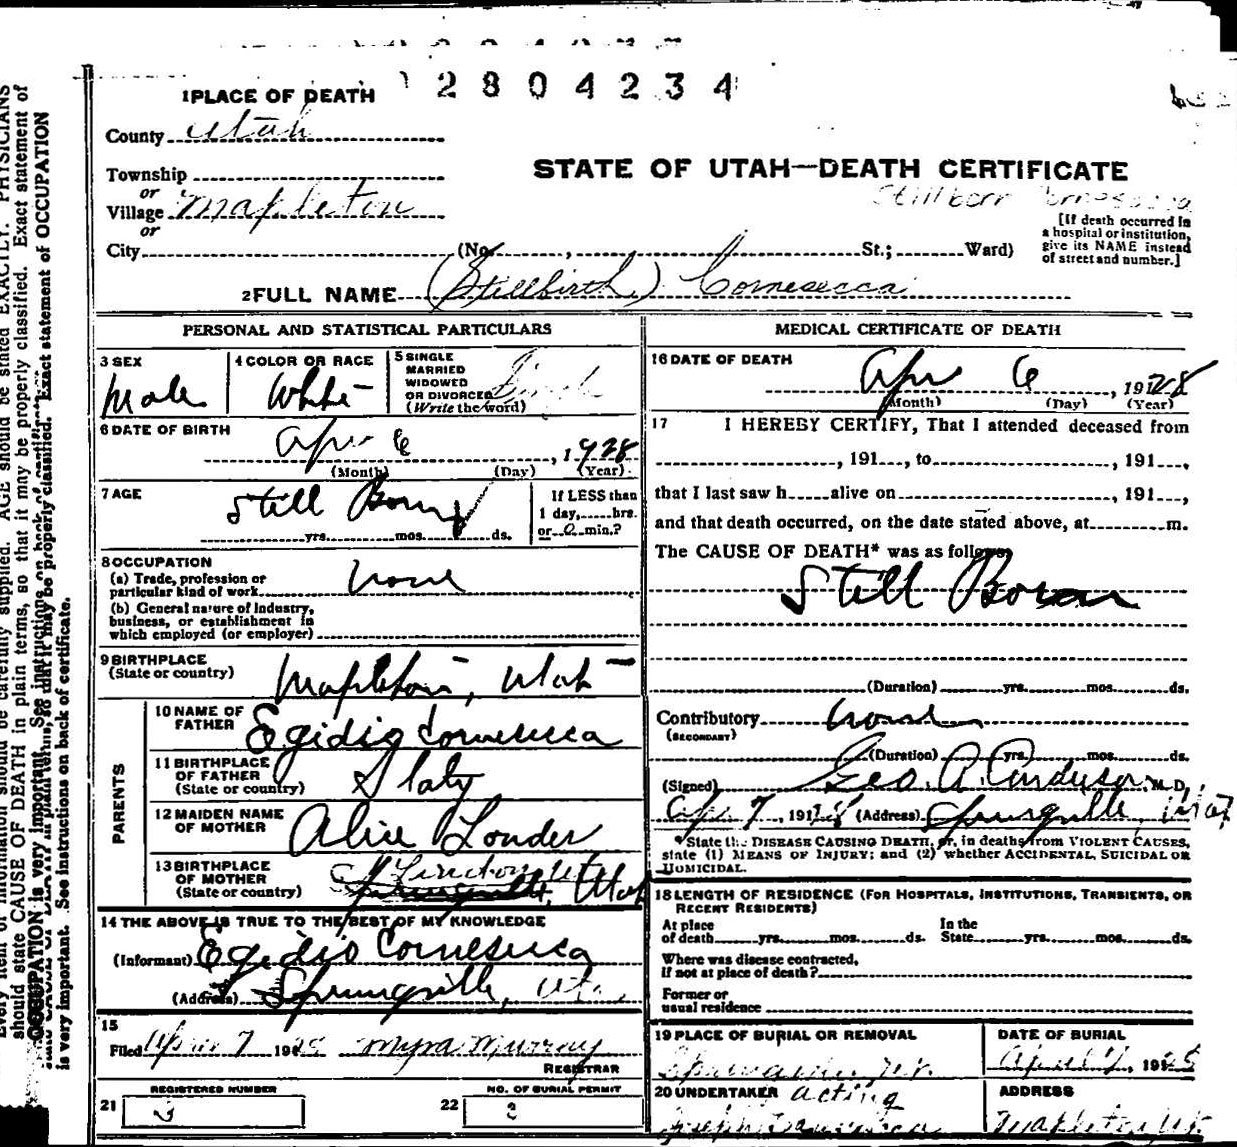 2804234
1 PLACE OF DEATH
County Utah
STATE OF UTAH—DEATH CERTIFICATE
Township
or
Village Mapleton
Stillborn
or
City (No. , St.; Ward)
[If death occurred in
a hospital or institution,
give its NAME instead
of street and number.]
2 FULL NAME (Stillbirth) Cornesecca
PERSONAL AND STATISTICAL PARTICULARS
3 SEX
Male
4 COLOR OR RACE
White
5 SINGLE
MARRIED
WIDOWED
OR DIVORCED
(Write the word)
6 DATE OF BIRTH
Apr 6, 1928
(Month) (Day) (Year)
7 AGE
Still Born
yrs. mos. ds.
If LESS than
1 day, hrs.
or 0 min.?
8 OCCUPATION
(a) Trade, profession or
particular kind of work None
(b) General nature of Industry,
business, or establishment in
which employed (or employer)
9 BIRTHPLACE
(State or country)
Mapleton, Utah
PARENTS
10 NAME OF
FATHER
Egidio Cornesecca
11 BIRTHPLACE
OF FATHER
(State or country)
Italy
12 MAIDEN NAME
OF MOTHER
Alice Louder
13 BIRTHPLACE
OF MOTHER
(State or country)
Utah
14 THE ABOVE IS TRUE TO THE BEST OF MY KNOWLEDGE
(Informant) Egidio Cornesecca
(Address) Springville, Utah
15
Filed April 7 1928 Myra Murray
REGISTRAR
REGISTERED NUMBER
21 3
NO. OF BURIAL PERMIT
22 3
MEDICAL CERTIFICATE OF DEATH
16 DATE OF DEATH
Apr 6, 1928
(Month) (Day) (Year)
17 I HEREBY CERTIFY, That I attended deceased from
, 191 , to , 191 ,
that I last saw h alive on , 191 ,
and that death occurred, on the date stated above, at m.
The CAUSE OF DEATH* was as follows:
Still Born
(Duration) yrs. mos. ds.
Contributory None
(SECONDARY)
(Duration) yrs. mos. ds.
(Signed) Geo. A. Anderson M.D.
Apr 7, 1928 (Address) Springville, Utah
*State the DISEASE CAUSING DEATH, or, in deaths from VIOLENT CAUSES,
state (1) MEANS OF INJURY; and (2) whether ACCIDENTAL, SUICIDAL OR
HOMICIDAL.
18 LENGTH OF RESIDENCE (FOR HOSPITALS, INSTITUTIONS, TRANSIENTS, OR
RECENT RESIDENTS)
At place
of death yrs. mos. ds.
In the
State yrs. mos. ds.
Where was disease contracted,
If not at place of death?
Former or
usual residence
19 PLACE OF BURIAL OR REMOVAL
DATE OF BURIAL
April 7, 1928
20 UNDERTAKER acting
Joseph
ADDRESS
Mapleton Ut.
should state CAUSE OF DEATH in plain terms, so that it may be properly classified. Exact statement of
is very important. See instructions on back of certificate.